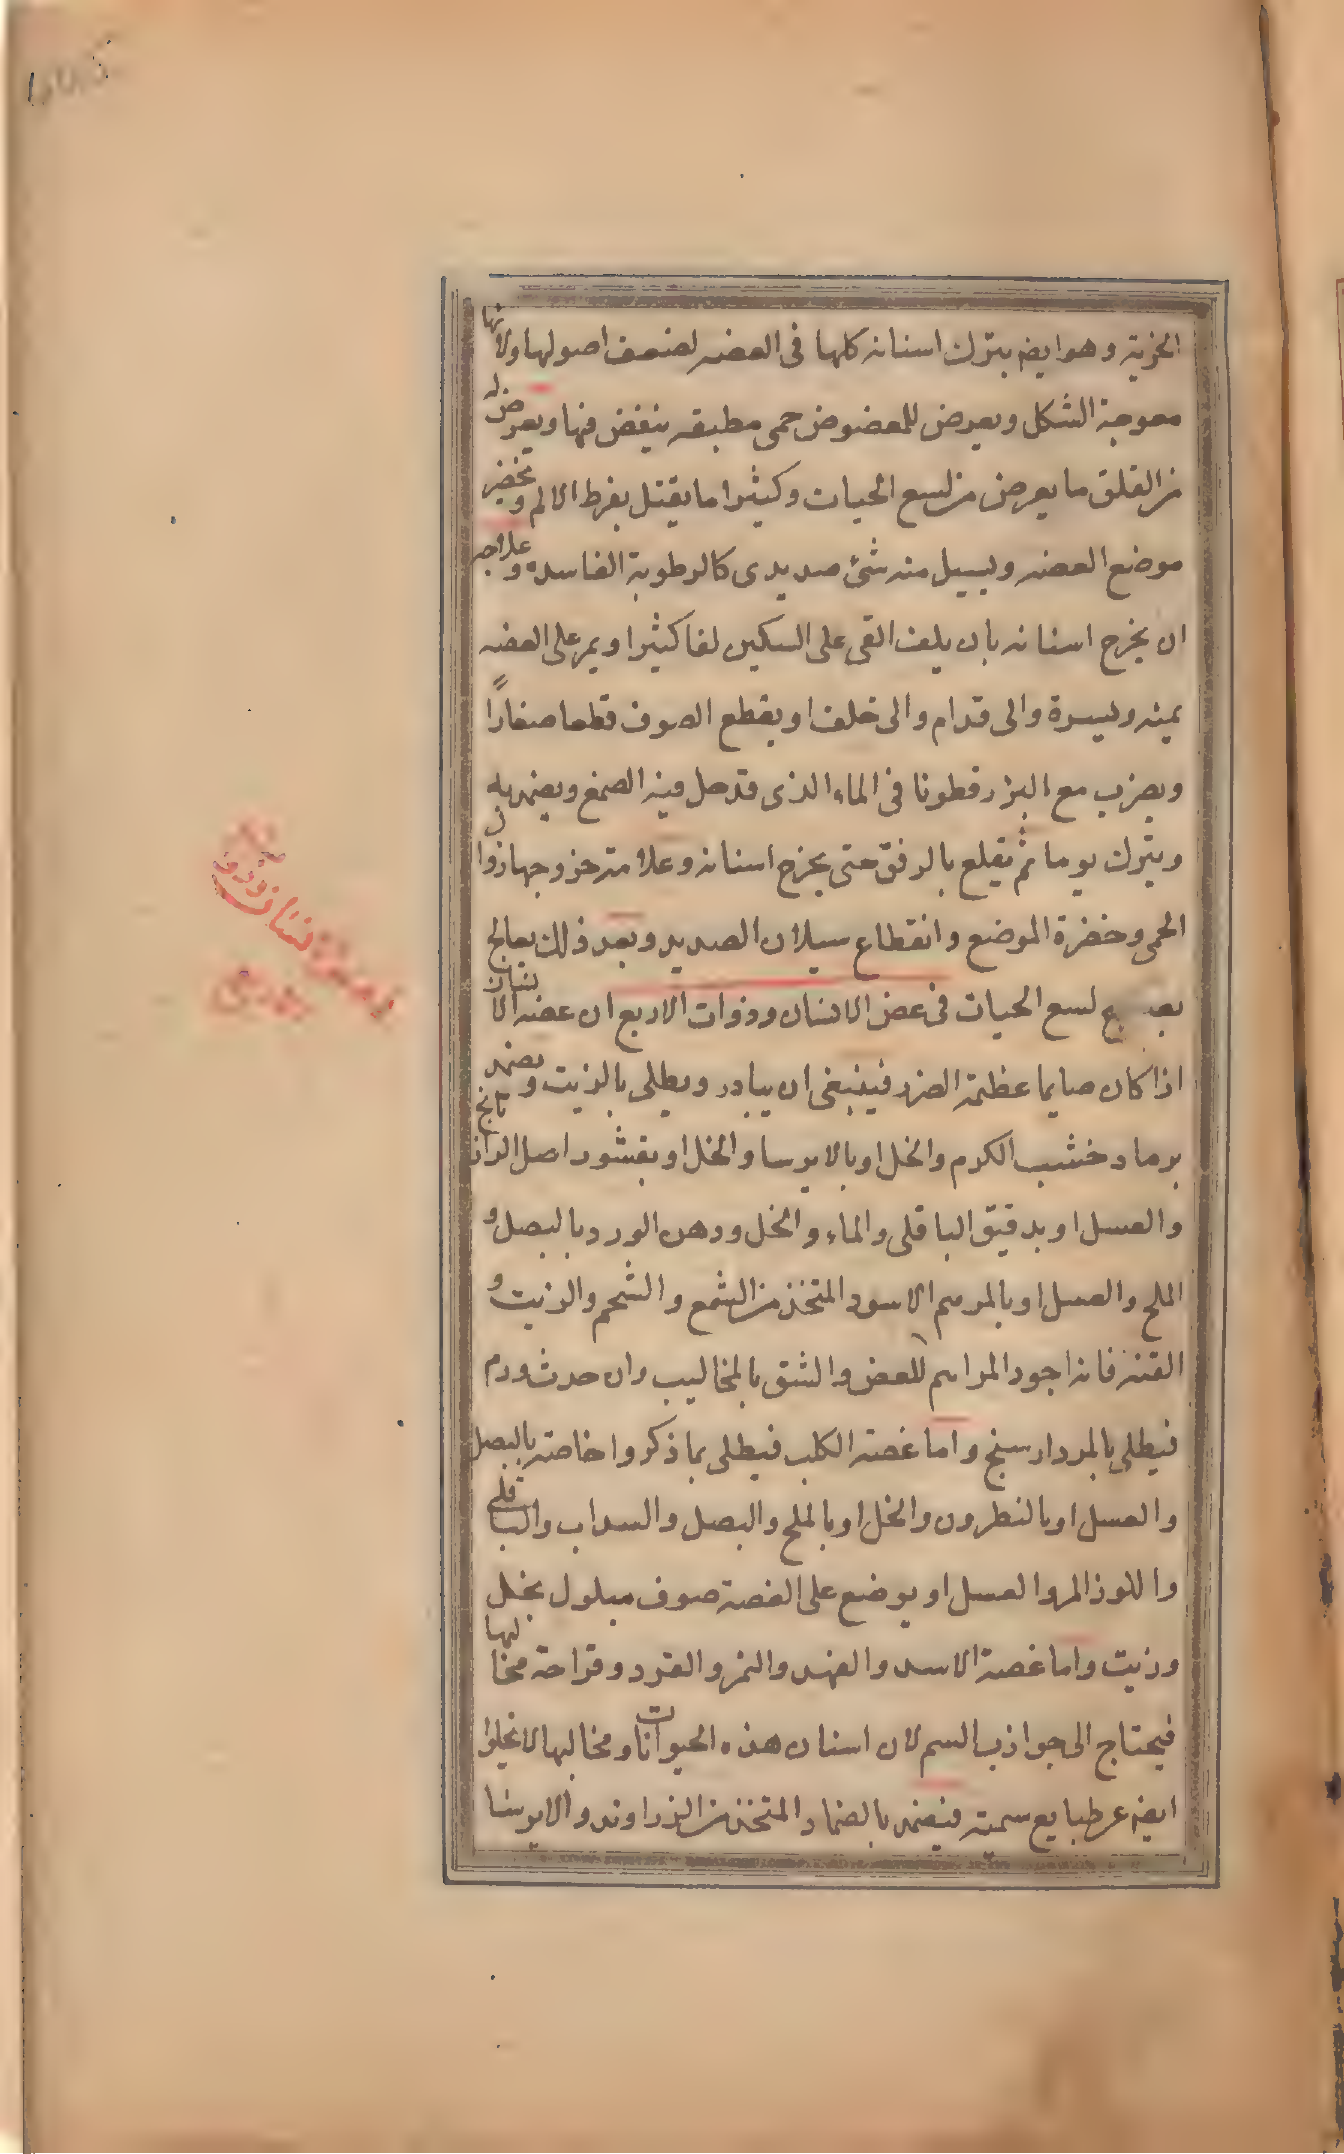 وهو ايضہ يترك اسنانہ كلها فى العضہ لضعف اصولها ولانها
معوجة الشكل ويعرض للمعضوض حمى مطبقہ ينغض فيها ويعرض له
من القلق ما يعرض من لسع الحيات وكثيرا ما يقتل بفرط الالم ويخضر
موضع العضہ ويسيل منہ شئ صديدى كالرطوبة الفاسده وعلاجہ
ان يخرج اسنانہ بان يلف القى على السكين لفا كثيرا ويمر على العضہ
يمينہ ويسرة والى قدام والى خلف او يقطع الصوف قطعا صغارًا
ويضرب مع البزرقطونا فى الماء الذى قد حل فيہ الصمغ ويضمد به
ويترك يوما ثم يقلع بالرفق حتى يخرج اسنانہ وعلامة خروجها زوال
الحمى وخضرة الموضع وانقطاع سيلان الصديد وبعد ذلك يعالج
لسع الحيات فى عض الانسان وذوات الاربع ان عضہ الانسان
اذا كان صايما عظيمة الضرر فينبغى ان يبادر ويطلى بالزيت ويضمد
برماد خشب الكرم والخل او بالايرسا والخل او بقشور اصل الرازيانج
والعسل او بدقيق الباقلى والماء والخل ودهن الورد بالبصل و
الملح والعسل او بالمرهم الاسود المتخذ من الشمع والشحم والزيت و
القنہ فانہ اجود المراهم للعض والشق بالمخاليب وان حدث ورم
فيطلى بالمردارسنج واما عضة الكلب فيطلى بما ذكروا خاصہ بالبصل
والعسل او بالنطرون والخل او بالملح والبصل والسداب والباقلى
واللوز المر والعسل او يوضع على العضة صوف مبلول بخل
وزيت واما عضة الاسد والفهد والنمر والقرد وقراحة مخاليها
فيحتاج الى جواذب السم لان اسنان هذه الحيوانات ومخاليها لا يخلوا
ايضہ عن طبايع سميہ فيضمد بالضماد المتخذ من الزراوند والايرسا